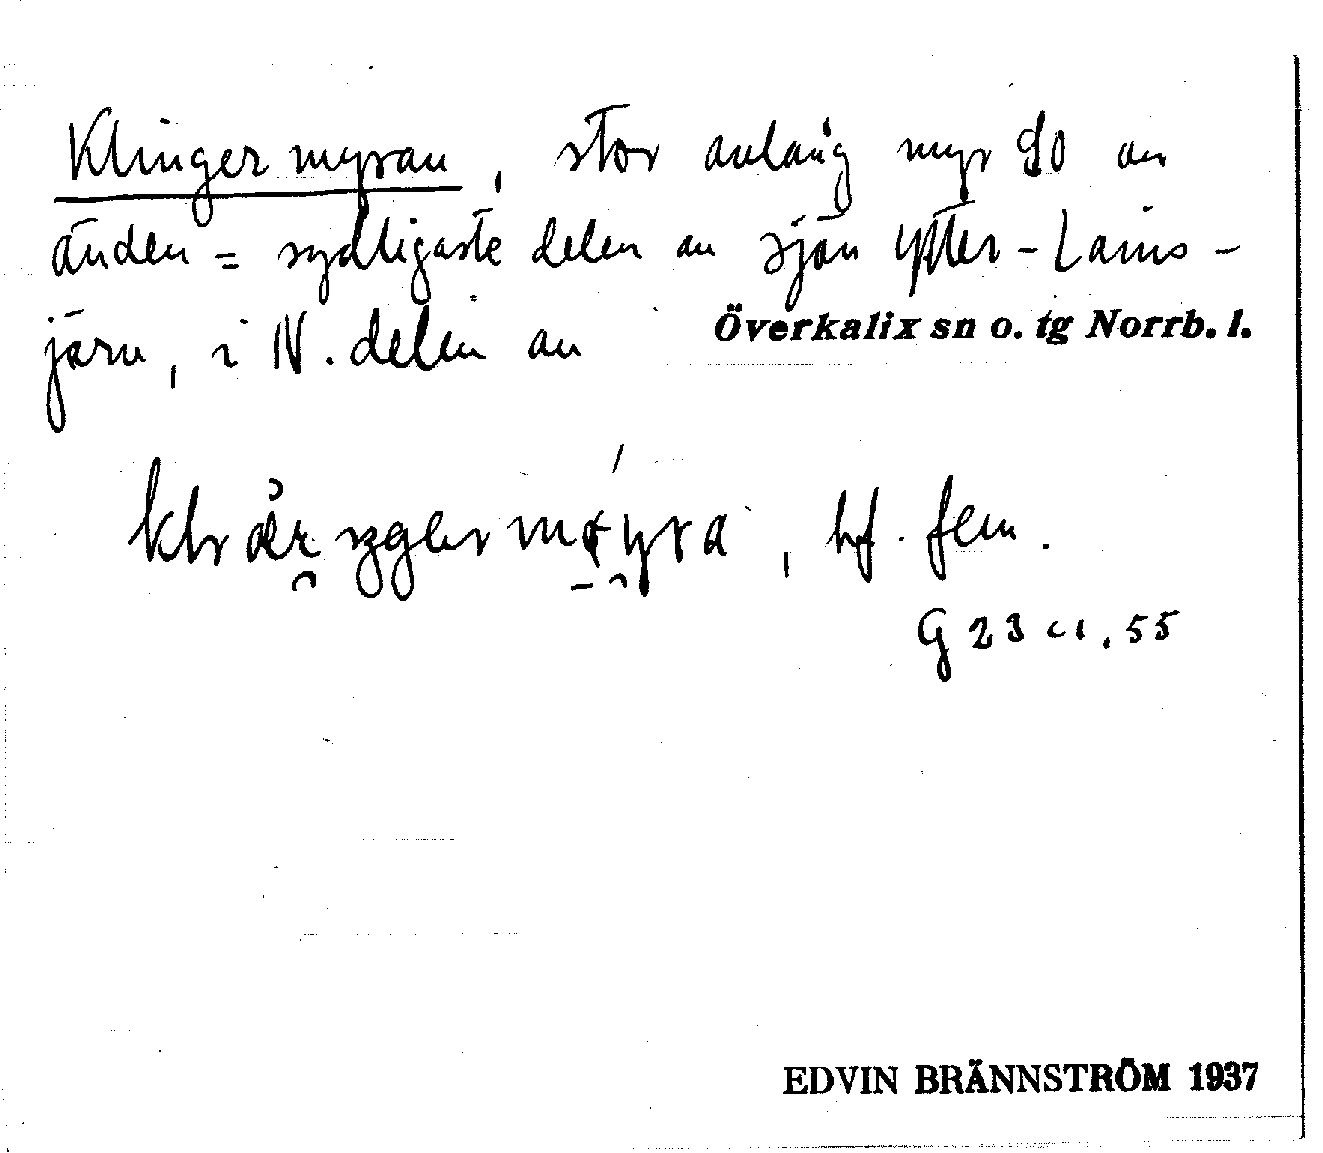 Klingermyran, stor avlång myr SO av
änden = sydligaste delen av sjön Ytter-Lains-
järv, i N. delen av Överkalix sn o. tg Norrb. l.
bf. fem.
G 23 c 1. 55
EDVIN BRÄNNSTRÖM 1937